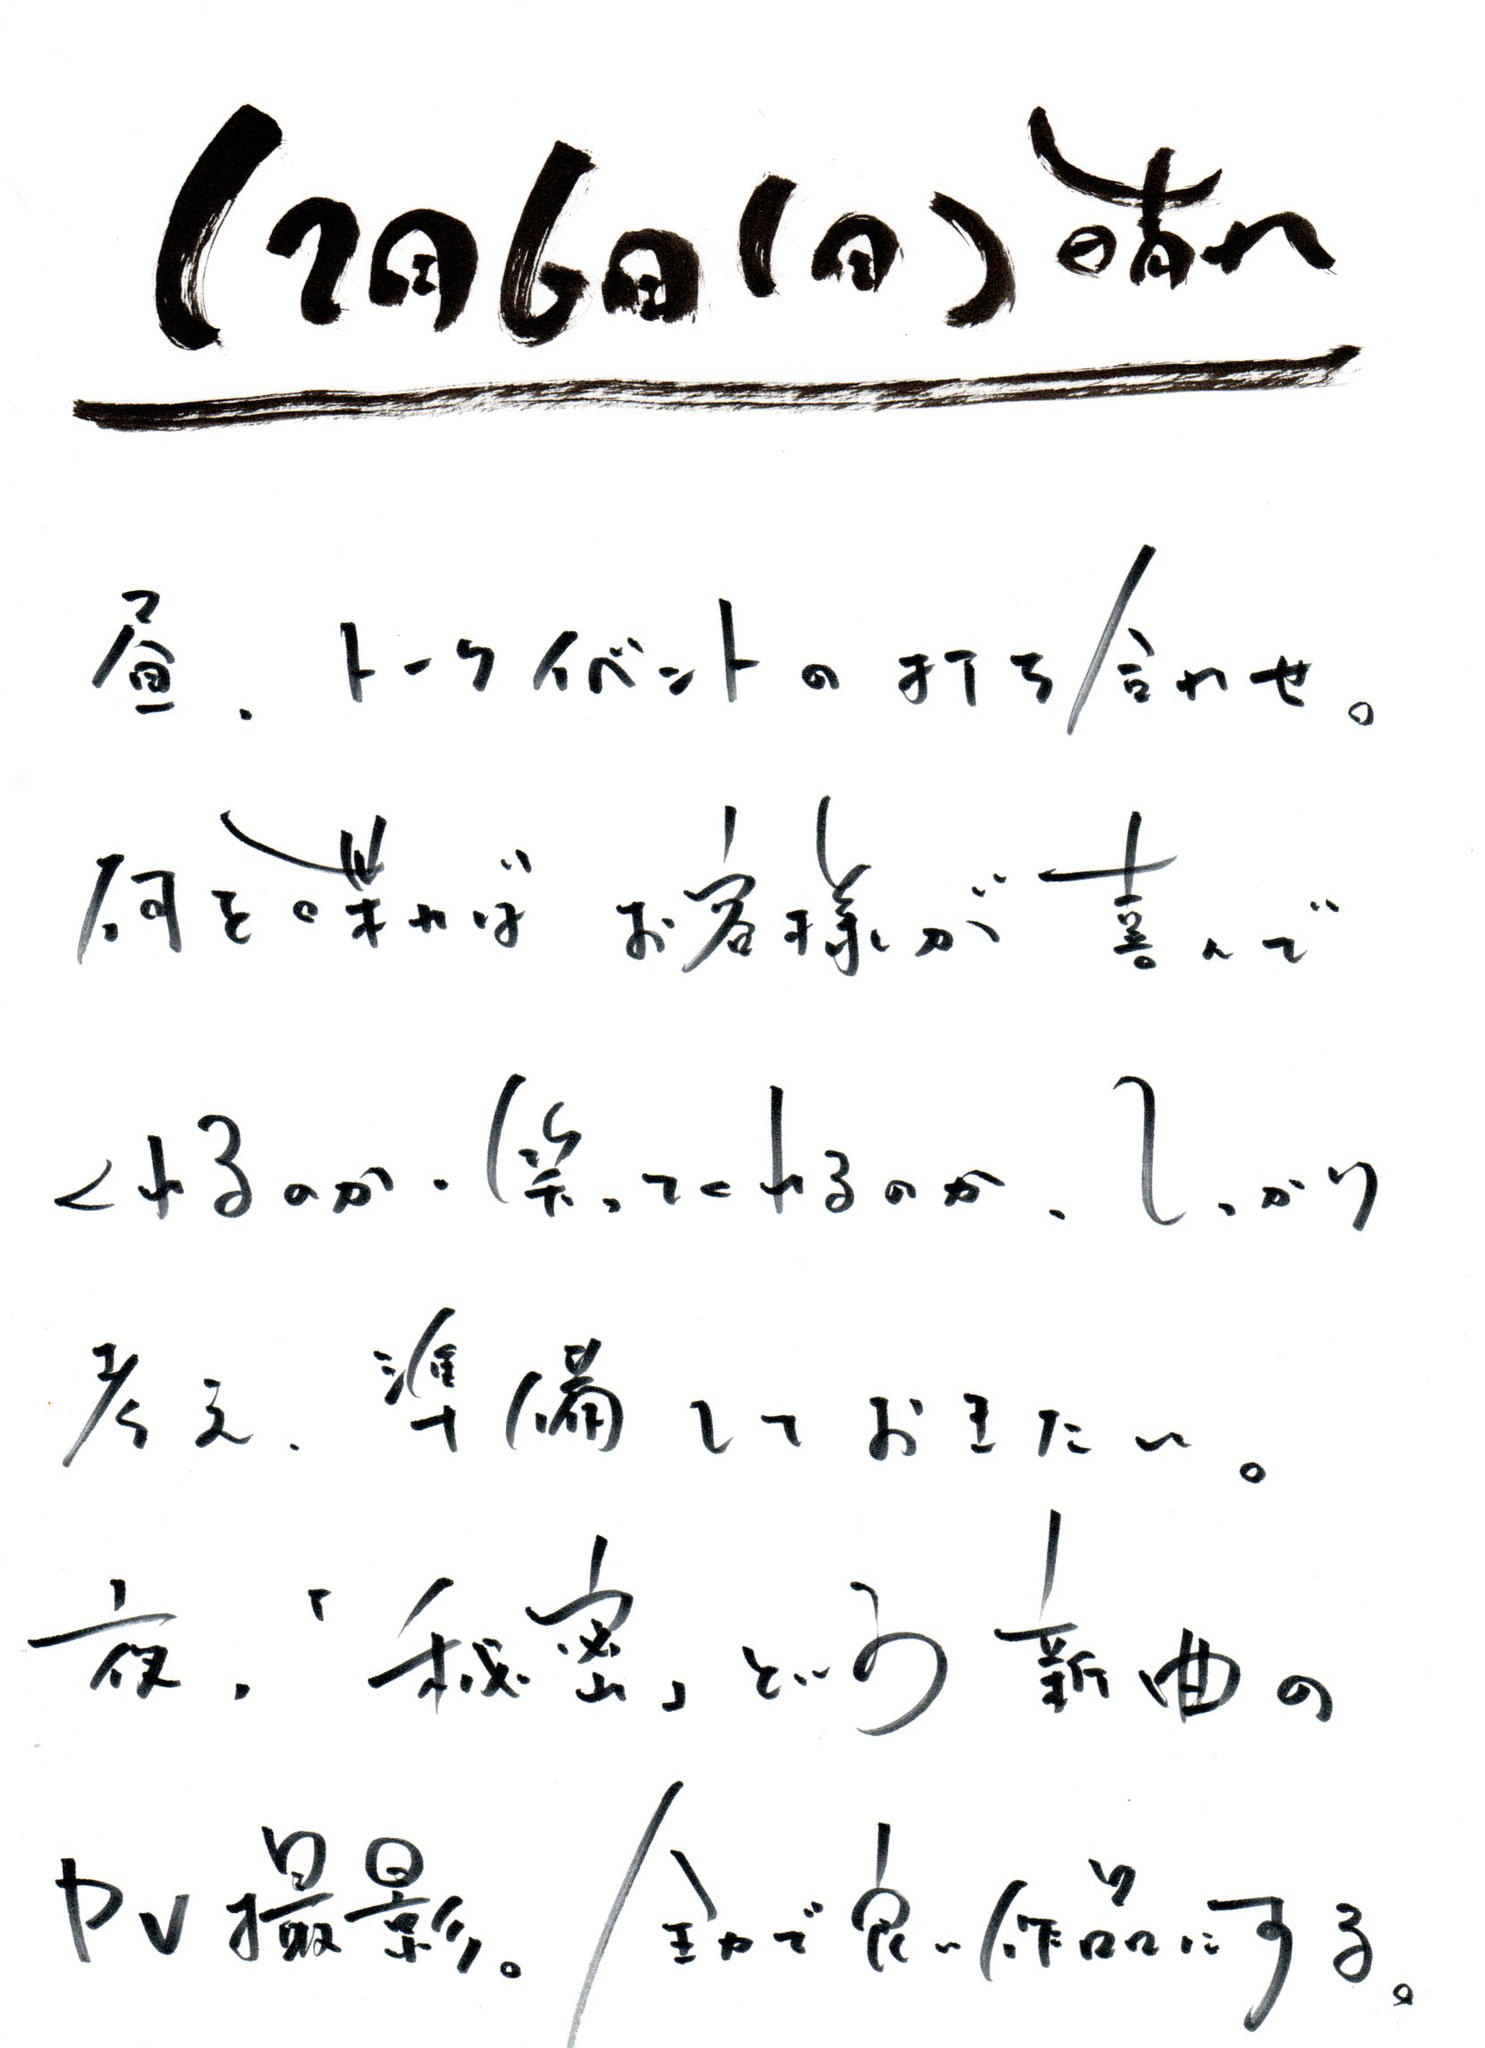 12月6日(日)晴れ
昼、トークイベントの打ち合わせ。
何を喋ればお客様が喜んで
くれるのか、笑ってくれるのか、しっかり
考え、準備しておきたい。
夜、「秘密」という新曲の
PV撮影。全力で良い作品にする。